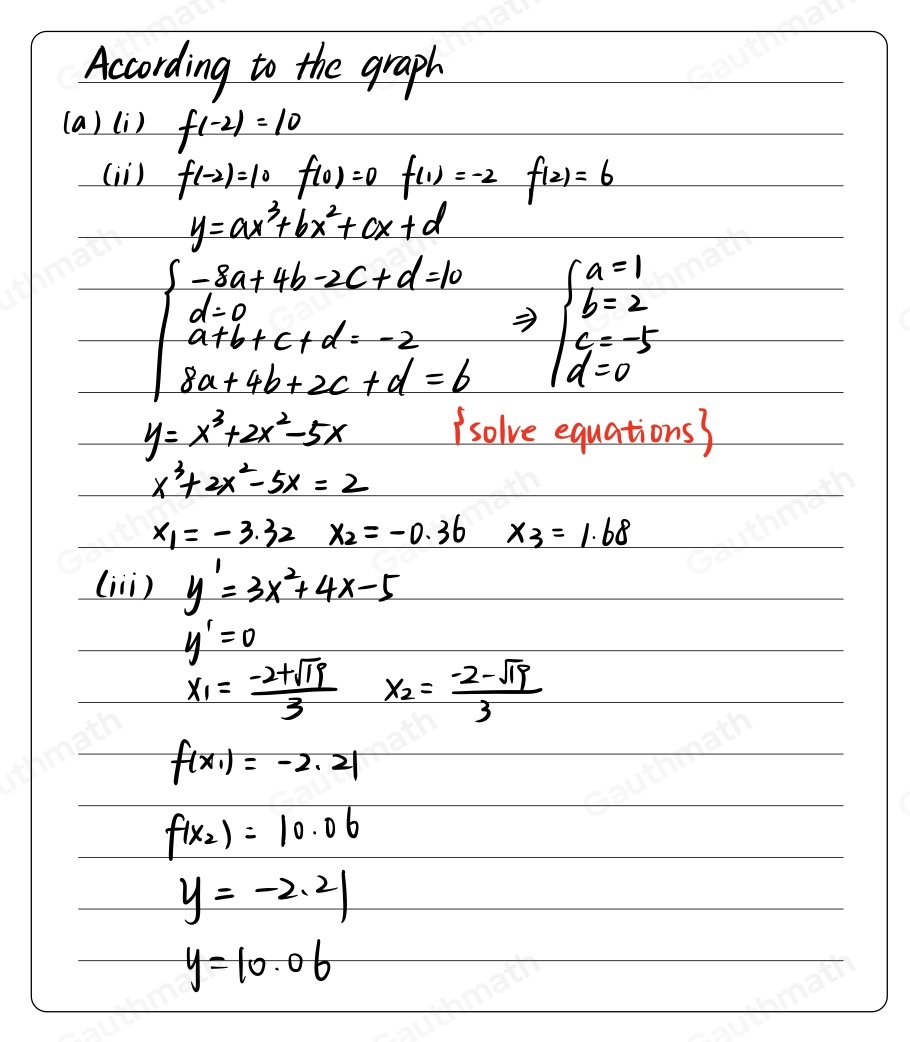 According to the graph
(a) (i) f(-2) = 10
(ii) f(-2)=10 f(0)=0 f(1)=-2 f(2)=6
y=ax³+bx²+cx+d
{ -8a+4b-2c+d=10
d=0
a+b+c+d=-2
8a+4b+2c+d=6
⇒ { a=1
b=2
c=-5
d=0
y=x³+2x²-5x {solve equations}
x³+2x²-5x=2
x₁=-3.32 x₂=-0.36 x₃=1.68
(iii) y'=3x²+4x-5
y'=0
x₁=(-2+√19)/3 x₂=(-2-√19)/3
f(x₁)=-2.21
f(x₂)=10.06
y=-2.21
y=10.06
Gauthmath